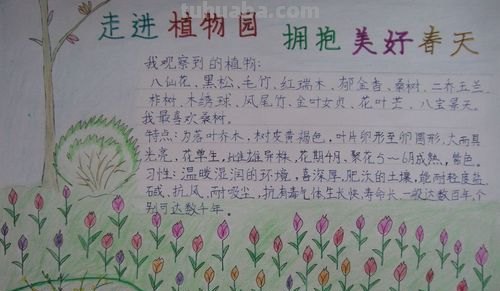 tuhuaba.com
走进植物园 拥抱美好春天
我观察到的植物:
八仙花、黑松、毛竹、红瑞木、郁金香、桑树、二乔玉兰、
柞树、木绣球、凤尾竹、金叶女贞、花叶芒、八宝景天。
我最喜欢桑树。
特点:为落叶乔木,树皮黄褐色,叶片卵形至卵圆形,大而具
光亮,花单生,雌雄异株,花期4月,聚花5~6月成熟,紫色。
习性:温暖湿润的环境,喜深厚,肥沃的土壤,能耐轻度盐
碱,抗风,耐吸尘,抗有毒气体生长快,寿命长,一般达数百年,个
别可达数千年。